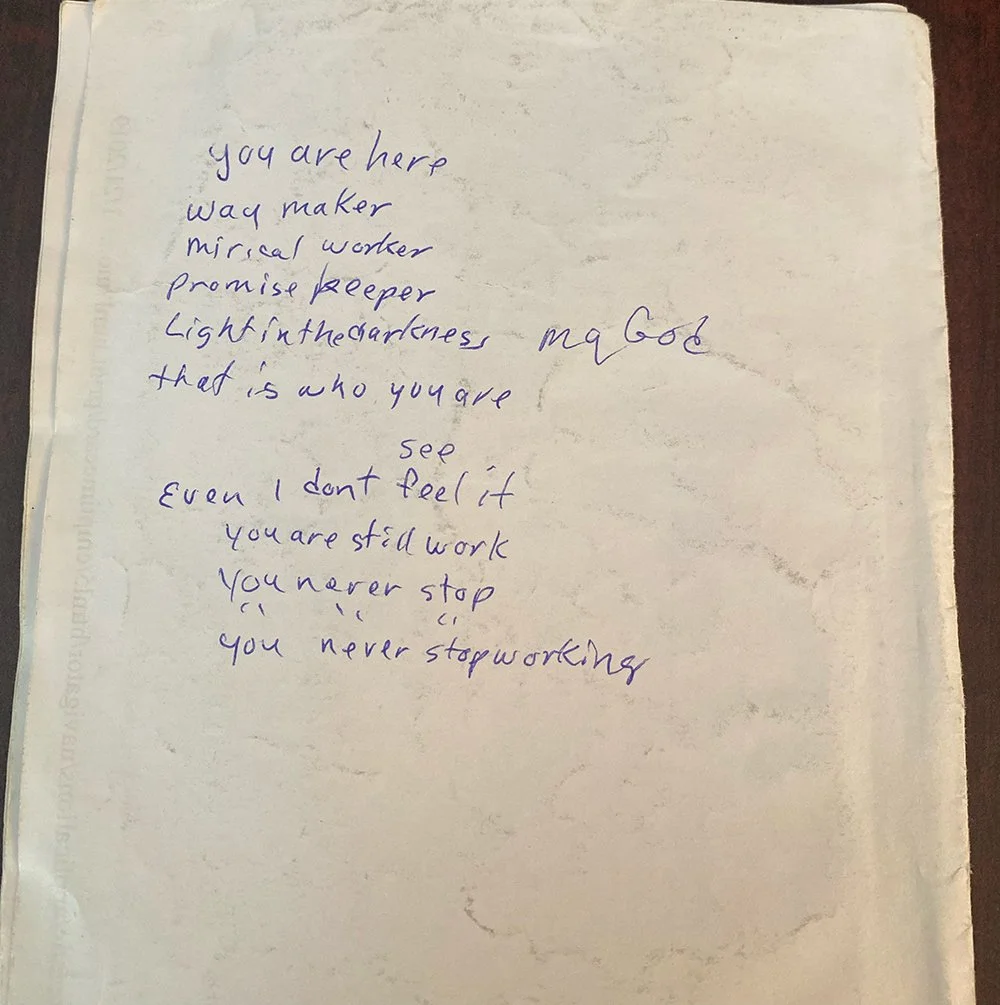 you are here
way maker
mirical worker
promise keeper
Light in the darkness my God
that is who you are
see
Even I dont feel it
you are still work
You never stop
" " "
you never stop working